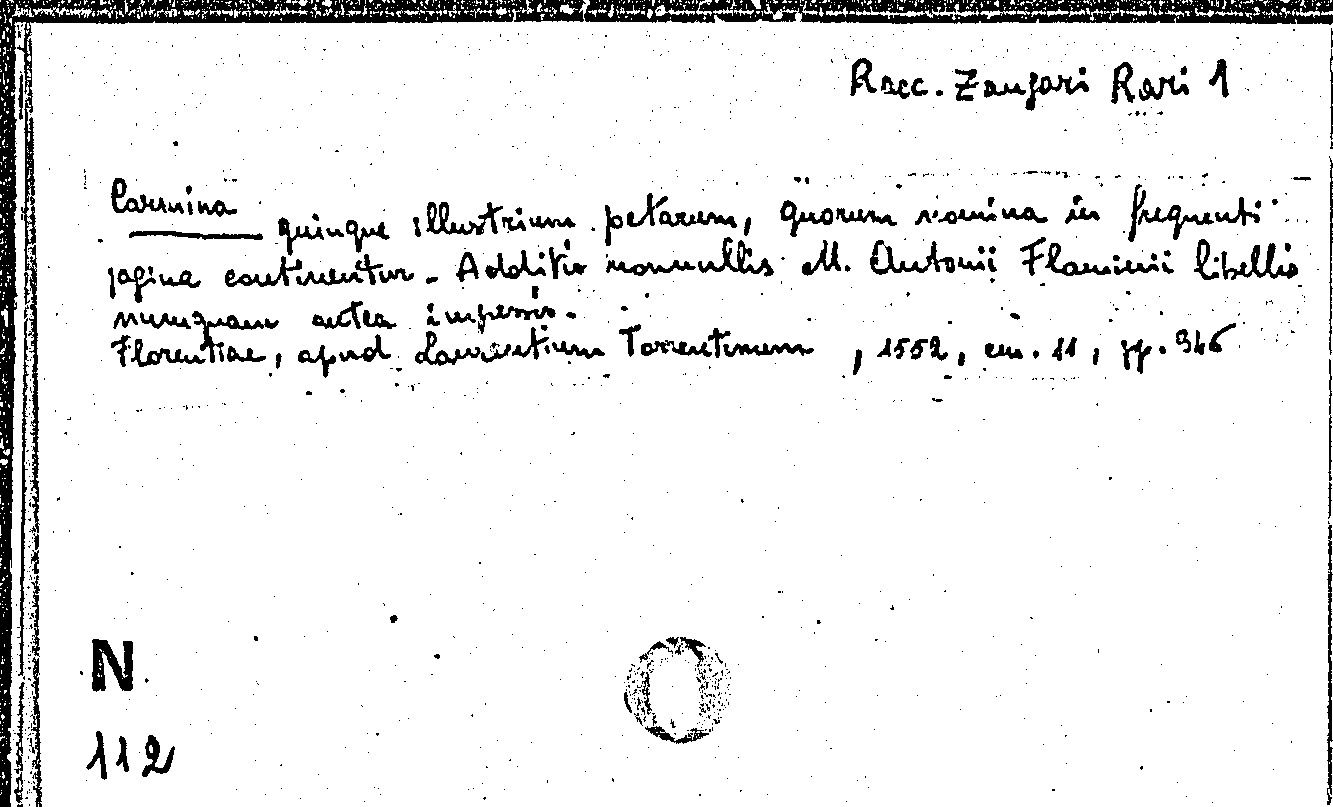 Racc. Zangari Rari 1
Carmina quinque illustrium petarum, quorum nomina in frequenti
pagina continentur. Additis nonnullis M. Antonii Flaminii libellis
nunquam antea impressis.
Florentiae, apud Laurentium Torrentinum, 1552, cm. 11, pp. 346
N
112